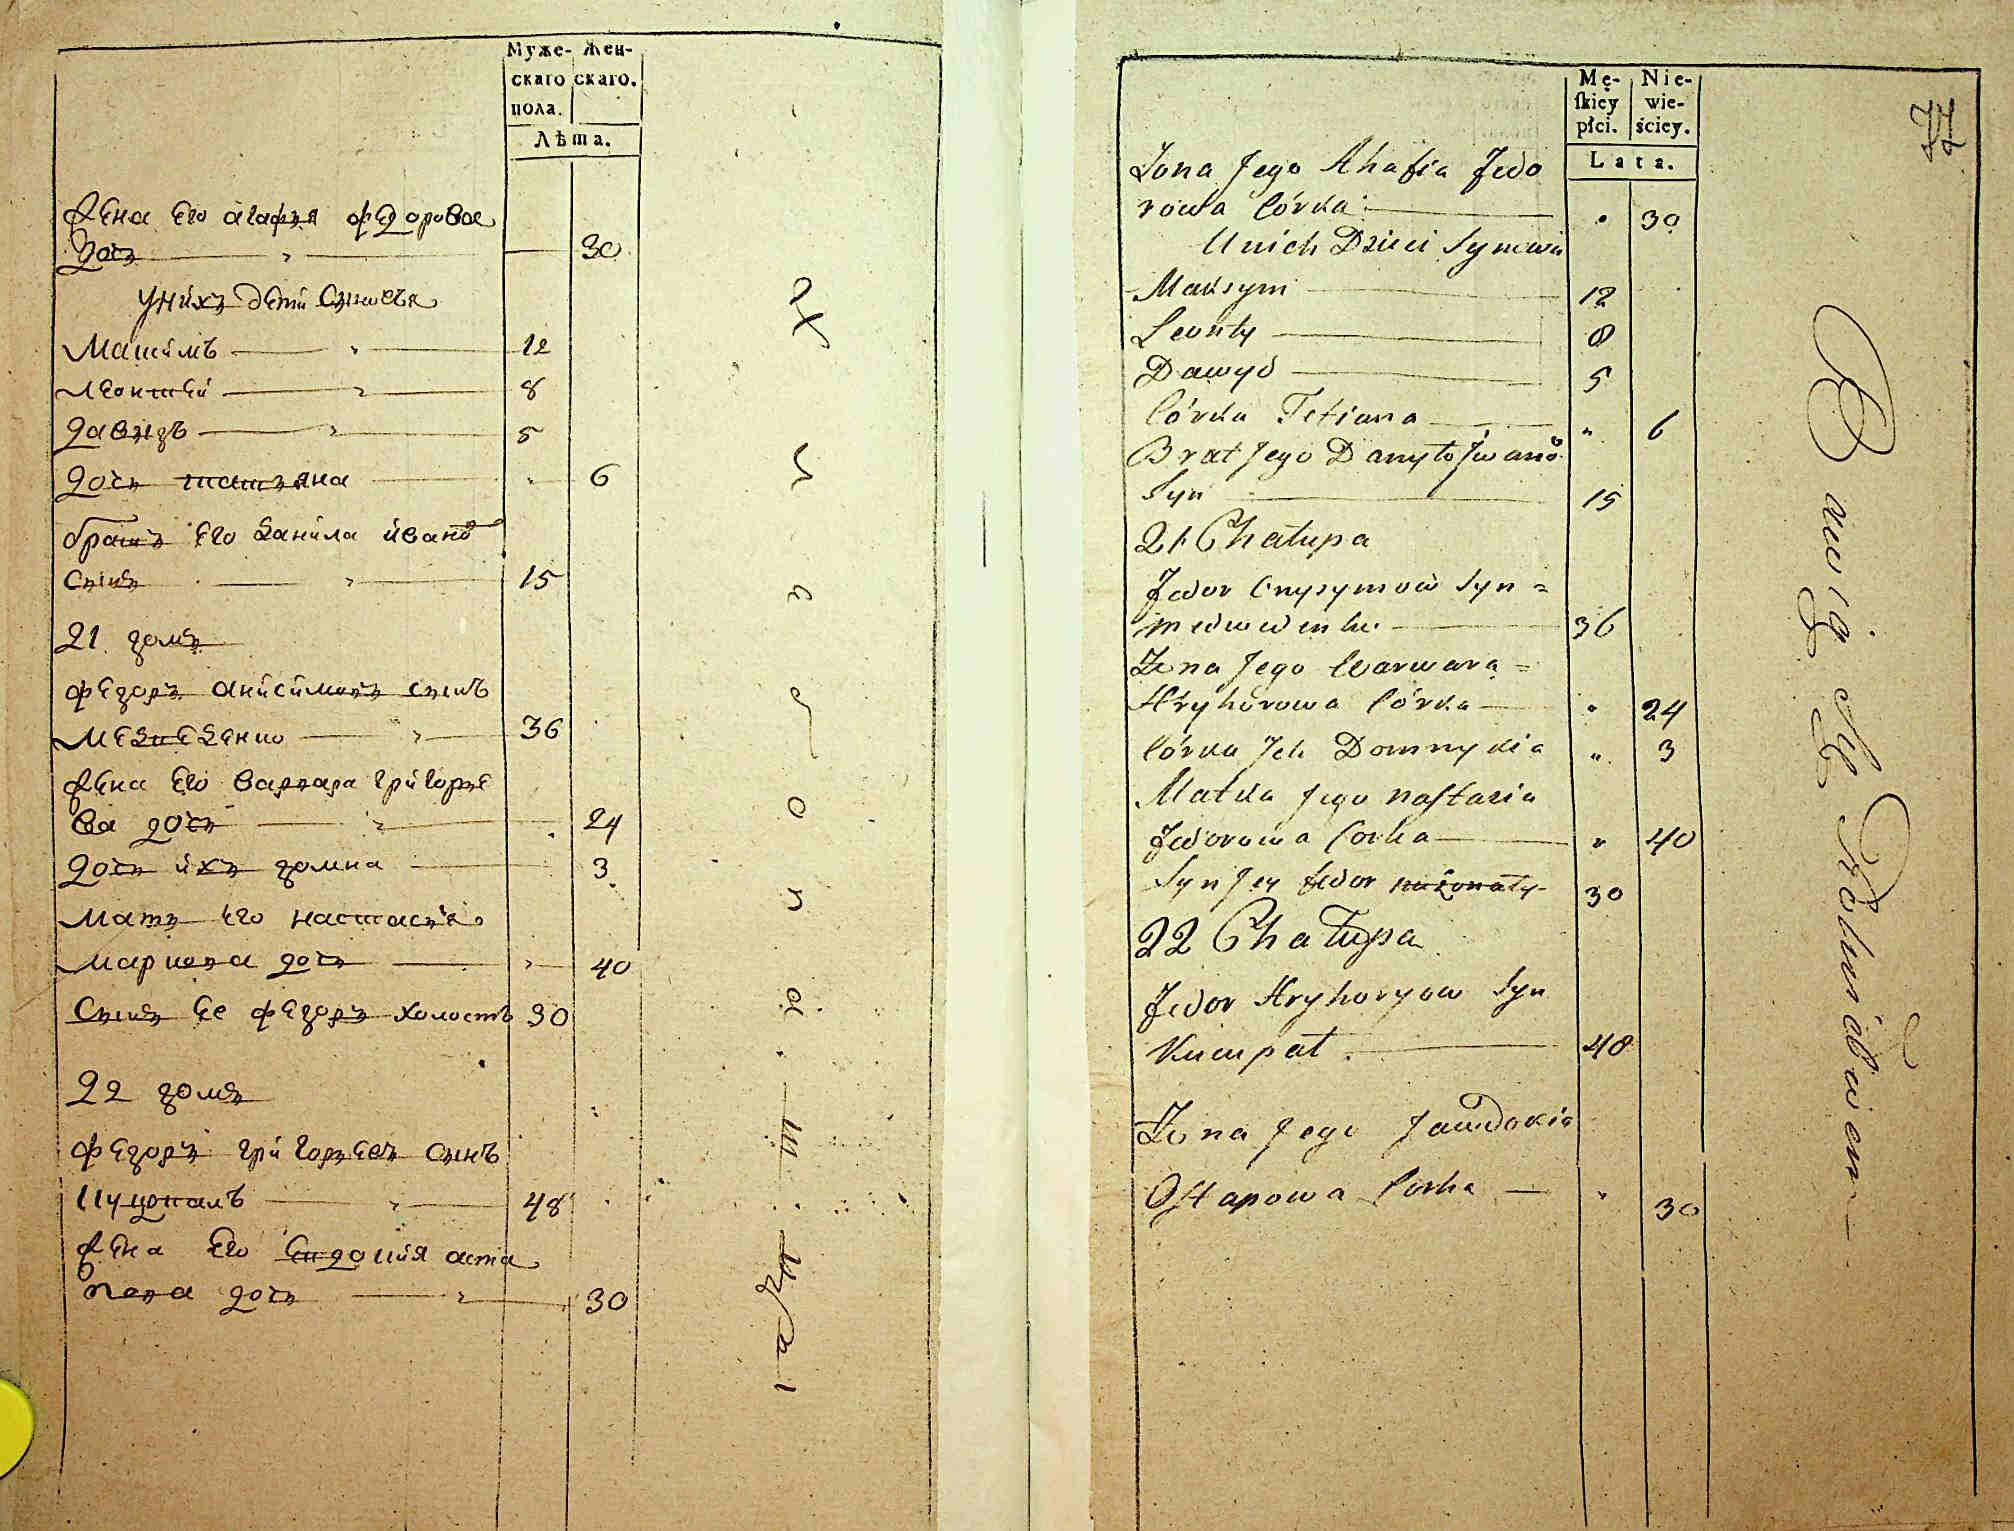 Муже-
скаго
пола.
Жен-
скаго.
Лѣта.
Жена Его агафия федорова
дочь 30
Унихъ дети синовья
Мацимъ 12
леонтей 8
давидъ 5
дочь татияна 6
братъ Его данила ивано
синъ 15
21 домъ
федоръ анисимовъ синъ
Медведенко 36
Жена Его варвара григорье
ва дочь 24
дочь ихъ домна 3
Мать Его настасия
маркова дочь 40
Синъ Ее федоръ холостъ 30
22 домъ
федоръ григорьевъ синъ
48
Жена Его Евдокия аста
пова дочь 30
Mę-
skiey
płci.
Nie-
wie-
ściey.
Lata.
77
Żona Jego Ahafia Fedo
rowa Córka 30
U nich Dzieci Synowie
Maksym 12
Leonty 8
Dawyd 5
Córka Tetiana 6
Brat Jego Danyło Iwano
Syn 15
21 Chałupa
Fedor Onysymow Syn =
Medwedenko 36
Żona Jego Warwara =
Hryhorowa Córka 24
Córka Ich Domnykia 3
Matka Jego Nastazia
Fedorowa Corka 40
Syn Jey Fedor nieżonaty 30
22 Chałupa
Fedor Hryhoryow Syn
48
Żona Jego Jawdokia
Ostapowa Corka 30